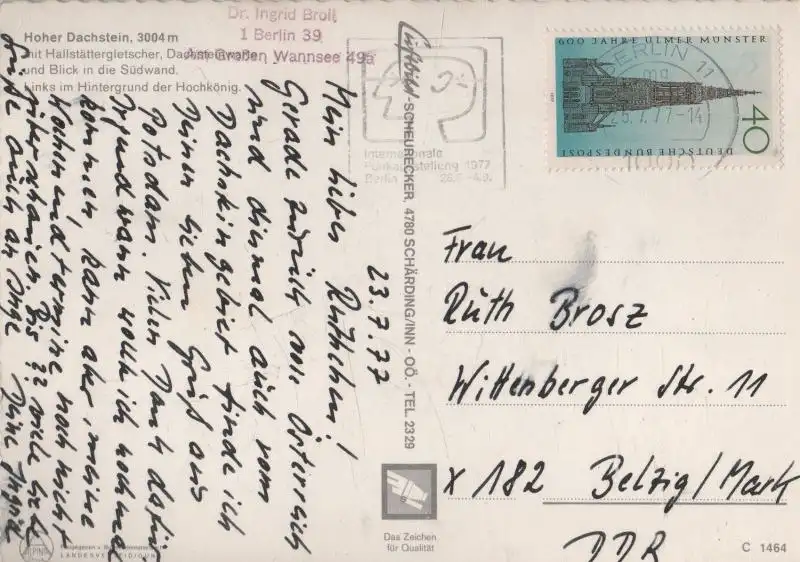 Hoher Dachstein, 3004 m
mit Hallstättergletscher, Dachsteinwarte
und Blick in die Südwand.
Links im Hintergrund der Hochkönig.
Dr. Ingrid Broll
1 Berlin 39
Am Großen Wannsee 49a
Internationale
Funkausstellung 1977
Berlin 26.8.-4.9.
600 JAHRE ULMER MÜNSTER
40
DEUTSCHE BUNDESPOST
BERLIN 11
25.7.77-14
1000
23.7.77
Mein liebes Ruthchen!
Gerade zurück aus Österreich
und diesmal auch vom
Dachsteingebiet finde ich
Deinen lieben Gruß aus
Potsdam. Vielen Dank dafür
Irgendwann wollte ich nochmal
kommen, kann aber meine
Kochen und Termine noch nicht
überschauen. Bis ?? viele liebe
Grüße auch an Inge Deine Ingrid
Luftbild-SCHEURECKER, 4780 SCHÄRDING/INN - OÖ. - TEL. 2329
Frau
Ruth Brosz
Wittenberger Str. 11
X 182 Belzig/Mark
DDR
Das Zeichen
für Qualität
ALPINA
LANDESVERTEIDIGUNG
C 1464